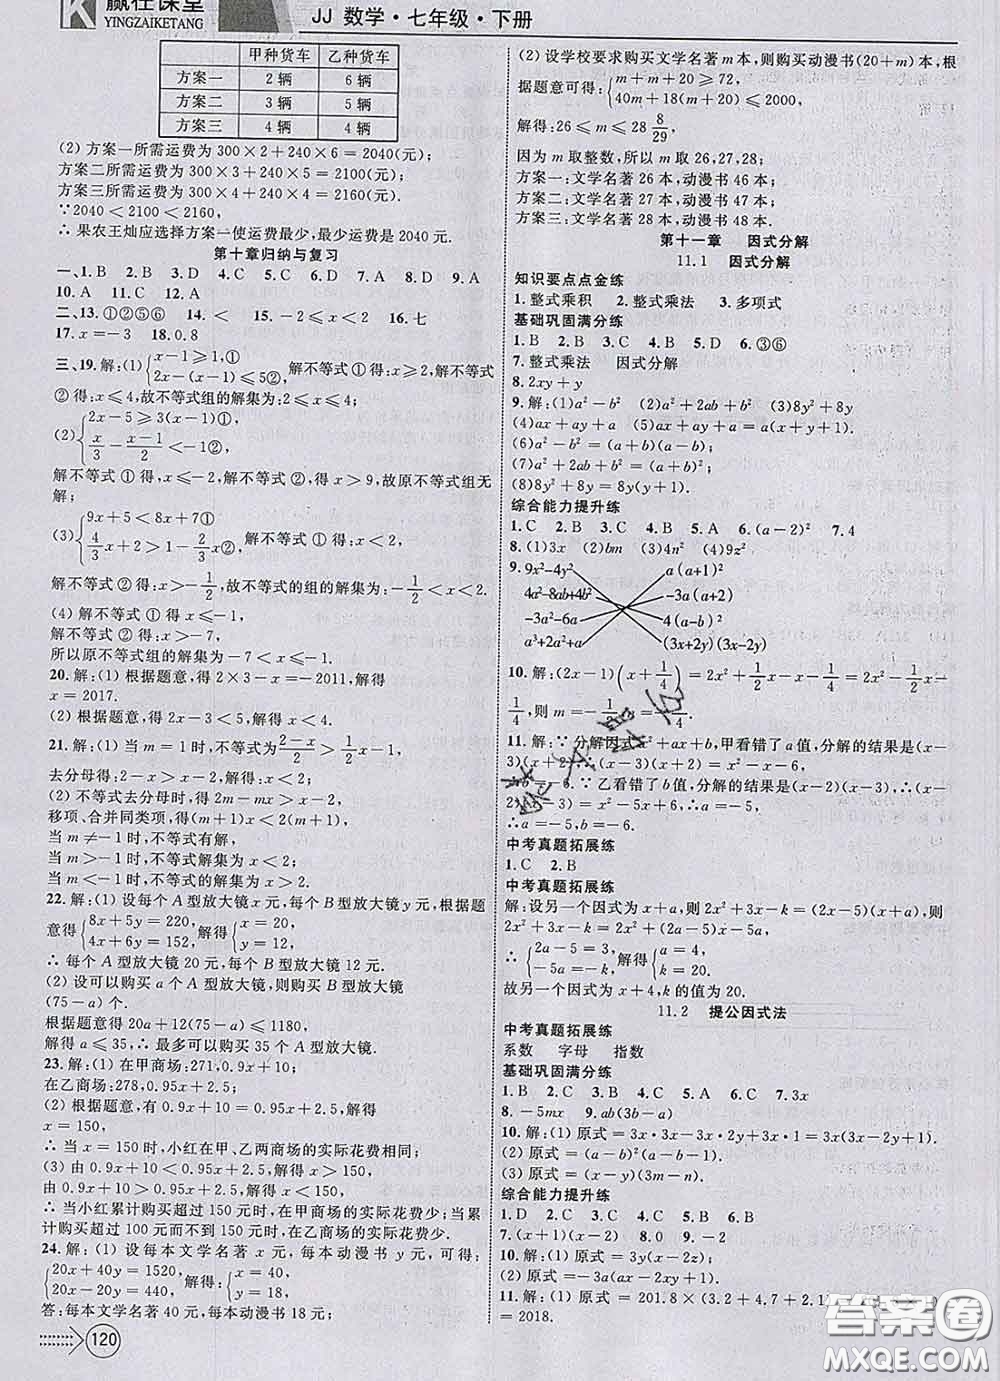 赢在课堂
YINGZAIKETANG
JJ 数学·七年级·下册
甲种货车 乙种货车
方案一 2辆 6辆
方案二 3辆 5辆
方案三 4辆 4辆
(2)方案一所需运费为300×2+240×6=2040(元);
方案二所需运费为300×3+240×5=2100(元);
方案三所需运费为300×4+240×4=2160(元).
∵2040<2100<2160,
∴果农王灿应选择方案一使运费最少,最少运费是2040元.
第十章归纳与复习
一、1.B 2.B 3.D 4.C 5.C 6.B 7.D 8.D 9.A
10.A 11.C 12.A
二、13.①②⑤⑥ 14.< 15.-2≤x<2 16.七
17.x=-3 18.0.8
三、19.解:(1){x-1≥1,① 2x-(x-1)≤5②, 解不等式①得:x≥2,解不等式②得:x≤4,故不等式组的解集为:2≤x≤4;
(2){2x-5≥3(x-1)①, x/3-(x-1)/2<-1②,
解不等式①得,x≤-2,解不等式②得:x>9,故原不等式组无
解;
(3){9x+5<8x+7① 4/3x+2>1-2/3x②,
解不等式②得:x>-1/2,故不等式的组的解集为:-1/2<x<2.
(4)解不等式①得x<3.
解不等式②得:x>-7,
所以原不等式组的解集为-7<x<3.
20.解:(1)根据题意,得2×3-x=-2011,解得
x=2017.
(2)根据题意,得2x-3<5,解得x<4.
21.解:(1)当m=1时,不等式为(2-x)/2>1/2x-1,
去分母得:2-x>x-2,解得:x<2.
(2)不等式去分母时,得2m-mx>x-2,
移项、合并同类项,得(m+1)x<2(m+1),
当m≠-1时,不等式有解,
当m>-1时,不等式解集为x<2;
当m<-1时,不等式的解集为x>2.
22.解:(1)设每个A型放大镜x元,每个B型放大镜y元,根据题
意得{8x+5y=220, 4x+6y=152, 解得:{x=20, y=12,
∴每个A型放大镜20元,每个B型放大镜12元.
(2)设可以购买A型放大镜a个,则购买B型放大镜
(75-a)个.
根据题意得20a+12(75-a)≤1180,
解得a≤35,∴最多可以购买35个A型放大镜.
23.解:(1)在甲商场:271,0.9x+10;
在乙商场:278,0.95x+2.5.
(2)根据题意,有0.9x+10=0.95x+2.5,解得
x=150,
∴当x=150时,小红在甲、乙两商场的实际花费相同;
(3)由0.9x+10<0.95x+2.5,解得x>150,
由0.9x+10>0.95x+2.5,解得x<150,
∴当小红累计购物超过150元时,在甲商场的实际花费少;当累
计购买超过100元而不到150元时,在乙商场的实际花费少.
24.解:(1)设每本文学名著x元,每本动漫书y元,可得:
{20x+40y=1520, 20x-20y=440, 解得:{x=40, y=18,
答:每本文学名著40元,每本动漫书18元;
120
(2)设学校要求购买文学名著m本,则购买动漫书(20+m)本,根
据题意可得:{m+m+20≥72, 40m+18(m+20)≤2000,
解得:26≤m≤28 8/29
因为m取整数,所以m取26,27,28;
方案一:文学名著26本,动漫书46本;
方案二:文学名著27本,动漫书47本;
方案三:文学名著28本,动漫书48本.
第十一章 因式分解
11.1 因式分解
知识要点点金练
1.整式乘积 2.整式乘法 3.多项式
基础巩固满分练
1.B 2.B 3.C 4.B 5.D 6.③⑥
7.整式乘法 因式分解
8.2xy+y
9.解:(1)a²-b² (2)a²+2ab+b² (3)8y²+8y
(4)ax+ay+a (5)ax+ay+a=a(x+y+1)
(6)a²-b²=(a+b)(a-b)
(7)a²+2ab+b²=(a+b)².
(8)8y²+8y=8y(y+1).
综合能力提升练
1.C 2.B 3.C 4.B 5.A 6.(a-2)² 7.4
8.(1)3x (2)bm (3)4n² (4)9z²
9. 9x²-4y² a(a+1)²
4a²-8ab+4b² -3a(a+2)
-3a²-6a 4(a-b)²
a³+2a²+a (3x+2y)(3x-2y)
10.解:(2x-1)(x+1/4)=2x²+1/2x-x-1/4=2x²-1/2x-
1/4,则m=-1/2,n=-1/4.
11.解:∵分解因式x²+ax+b,甲看错了a值,分解的结果是(x-
3)(x+2),∴(x-3)(x+2)=x²-x-6,
∴b=-6.∵乙看错了b值,分解的结果是(x-2)(x-3),∴(x-
2)(x-3)=x²-5x+6,
∴a=-5,b=-6.
中考真题拓展练
1.C 2.B
中考真题拓展练
解:设另一个因式为x+a,则2x²+3x-k=(2x-5)(x+a),则
2x²+3x-k=2x²+(2a-5)x-5a,
∴{2a-5=3, -5a=-k, 解得{a=4, k=20,
故另一个因式为x+4,k的值为20.
11.2 提公因式法
中考真题拓展练
系数 字母 指数
基础巩固满分练
1.B 2.C 3.B 4.C 5.A 6.C 7.3x
8.-5mx 9.ab(3b-a)
10.解:(1)原式=3x·3x-3x·2y+3x·1=3x(3x-2y+1).
(2)原式=(a-b)²(a-b-1).
(3)原式=(x-y)(m-n).
综合能力提升练
1.D 2.C 3.C 4.D 5.B 6.B
7.(x+1)(x-2) 8.0 9.-2
10.解:(1)原式=3y(y-2x).
(2)原式=
11.解:(1)原式=201.8×(3.2+4.7+2.1)
=2018.
答案圈
MXQE.COM